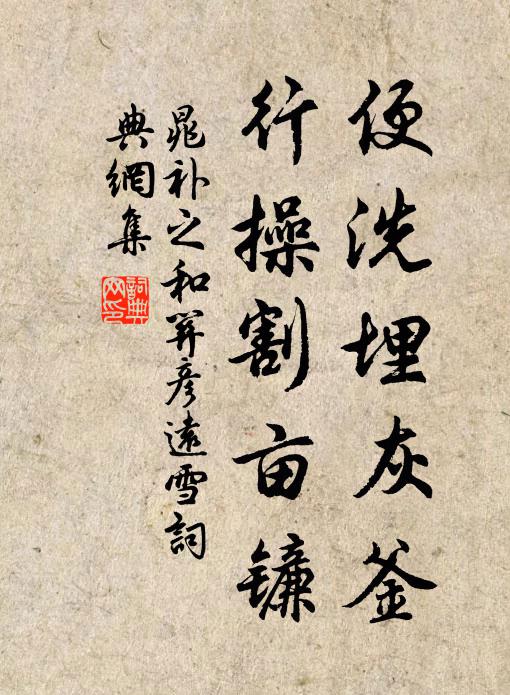 便洗埋灰釜
行操割亩镰
晁补之和羿彦远雪詞
典網集
詞典
网印